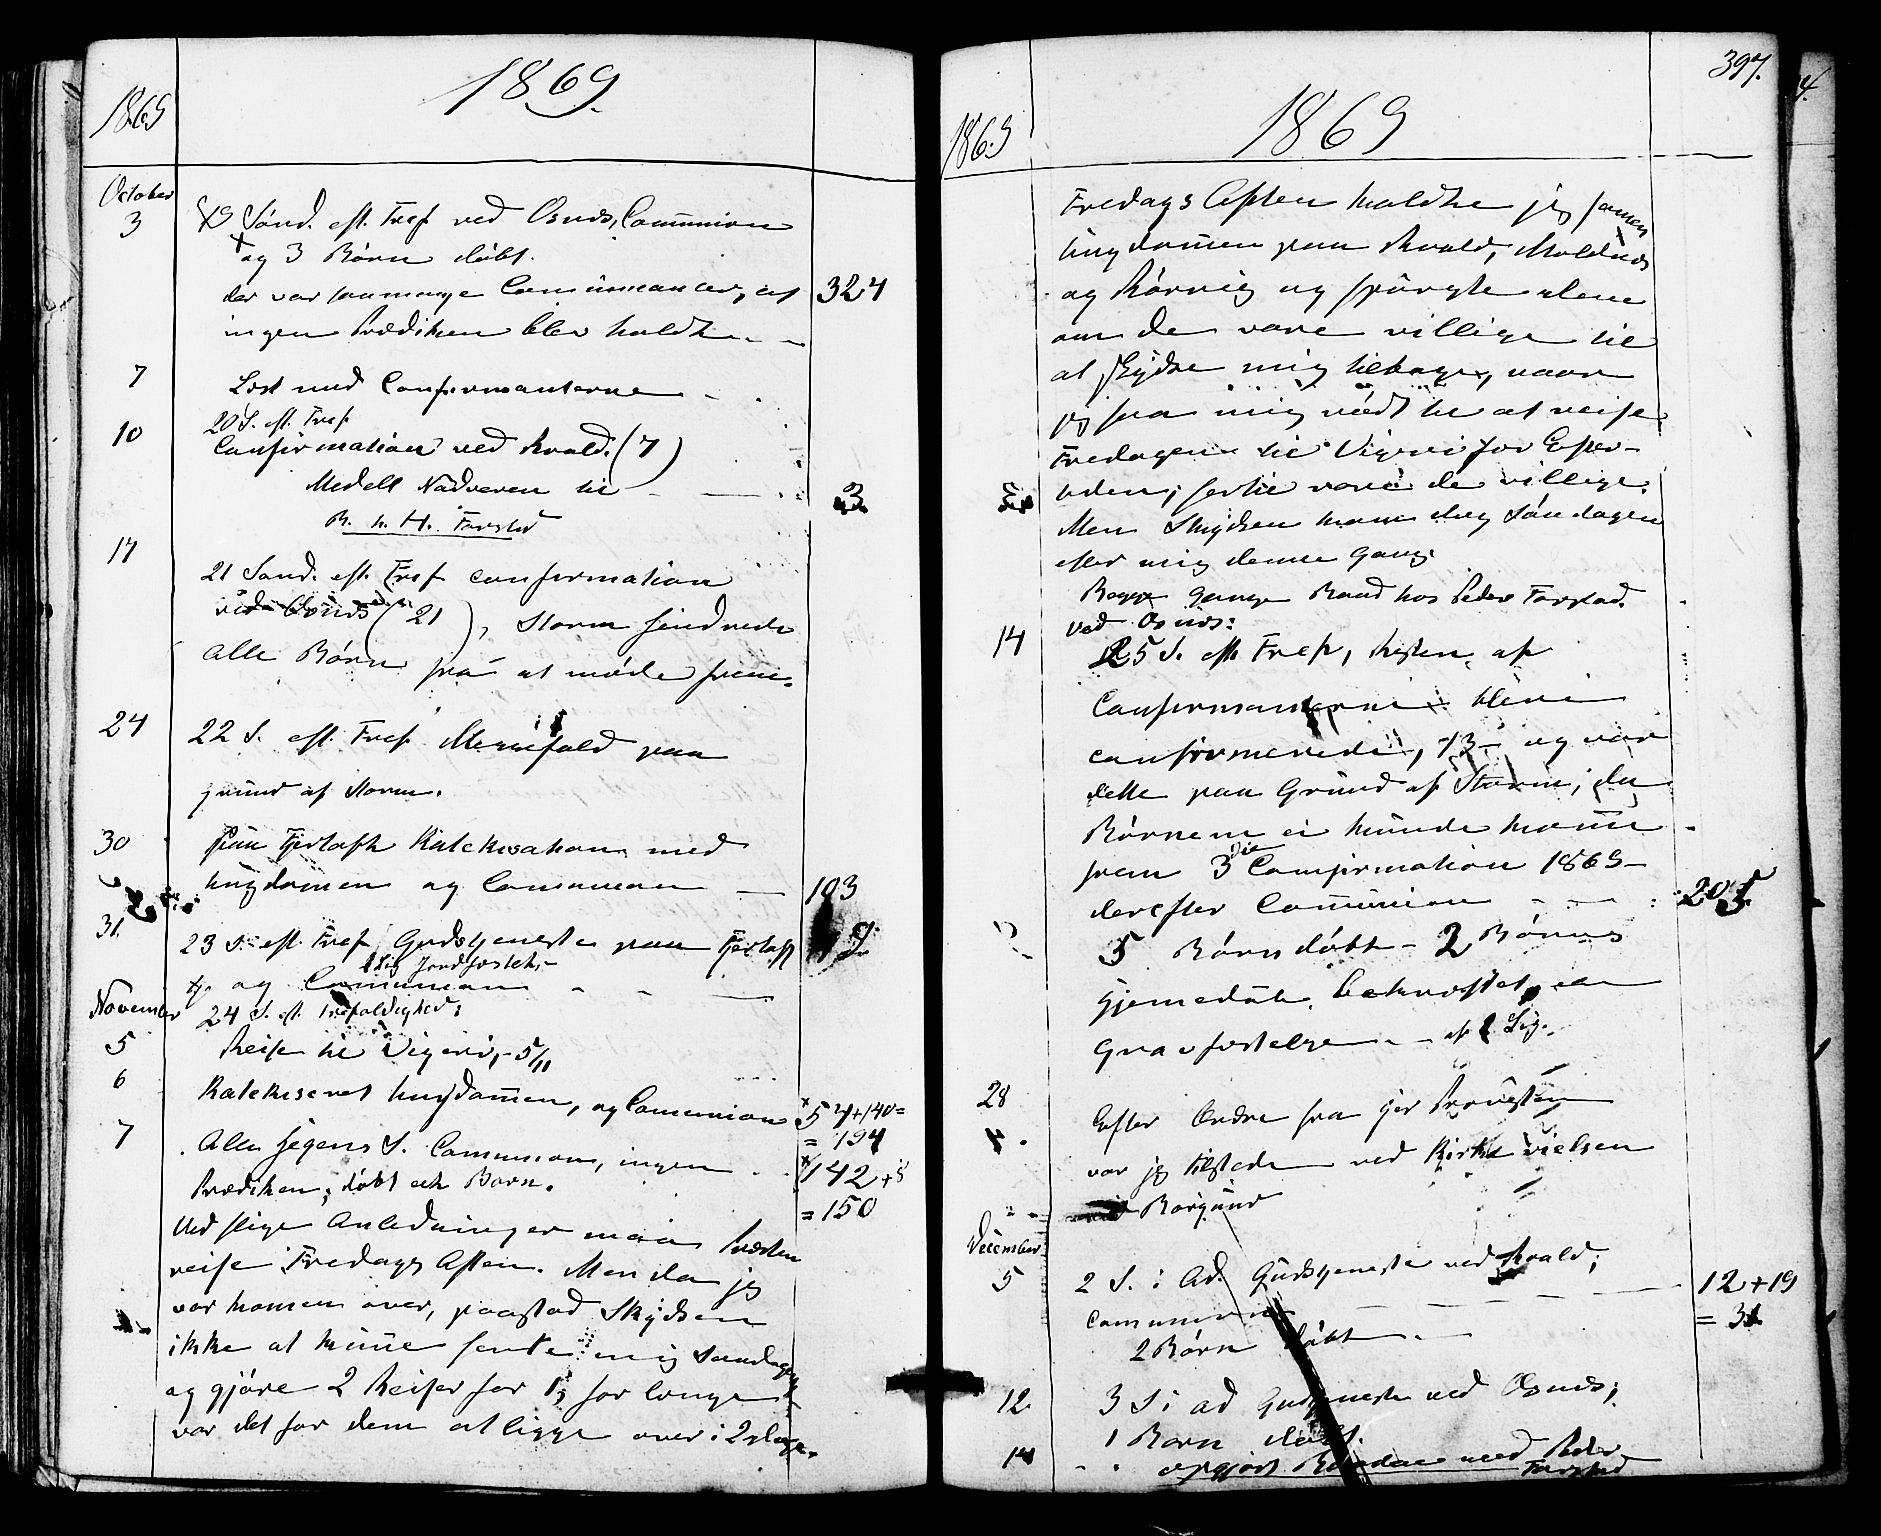 1869
1869.
October
3 19 Sönd. eft. Tref ved Osnæs, Communion
og 3 Börn döbt.
der var saamange Communicanter, at 324
ingen Prædiken blev holdt
7 Læst med Confirmanterne
20 S. eft. Tref
10 Confirmation ved Roald. (7)
Meddelt Nadveren til 3
P. K. H. Farstad
17
21 Sönd. eft. Tref Confirmation
ved Osnæs (21), Storm hindrede
alle Börn fra at möde frem.
24 22 S. eft. Tref Messefald paa
grund af Storm.
30 paa Fjertoft Katekisation med
ungdomen og Communion 103
31. 23 S. eft. Tref Gudstjeneste paa Fjertoft 9
1 Lig Jordfæstet,
og Communion
November 24 S. eft. Trefoldighed:
5 Reise til Vigeri, 5/11
6 Katekiseret ungdommen, og Communion 54+140=
= 194
7 Alle helgens S. Communion, ingen 142+8
Prædiken, döbt et Barn.
= 150
Ved slige Anledninger maa Præsten
reise Fredags Aften. Men da jeg
var kommen over, paastod Skydsen
ikke at kunne hente mig Söndagen
og gjöre 2 Reiser for 1, for længe
var det for dem at ligge over i 2 dage.
397.
1869
1869
Fredags Aften holdte jeg sammen
ungdommen paa Roald, Moldnæs
og Rörvig og spurgte dem
om de vare villige til
at skydse mig tilbage, naar
jeg saa mig nödt til at reise
Fredagen til Vigeri for Efter-
tiden; hertil vare de villige.
Men Skydsen kom dog Söndagen
efter mig denne Gang.
Begge Gange Baad hos Peder Farstad.
ved Osnæs:
14 25 S. eft Tref, Resten af
Confirmanterne bleve
confirmerede, 13 og var
dette paa Grund af Storm, da
Börnene ei kunde komme
frem 3die Confirmation 1869
derefter Communion 205
5 Börn döbt - 2 Börns
Hjemedaab bekræftet, en
Gravfæstelse af 1 Lig.
28 Efter Ordre fra Hr Provsten
var jeg tilstede ved Kirkevielsen
ved Borgund
December
5 2 S. i Ad. Gudstjeneste ved Roald; 12+19
Communion = 31
2 Börn döbt
12. 3 S i ad Gudstjeneste ved Osnæs;
1 Barn döbt.
14 opgjort med Peder
Farstad